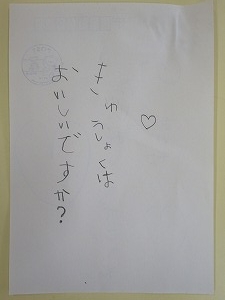 きゅうしょくは
おいしいですか?